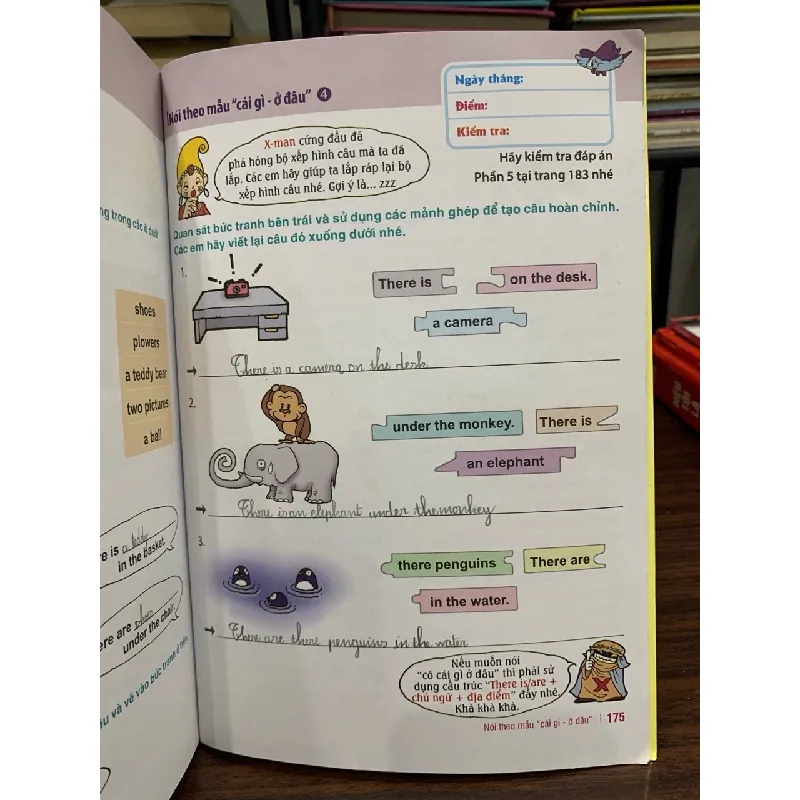 Nói theo mẫu "cái gì - ở đâu" 4
Ngày tháng:
Điểm:
Kiểm tra:
Hãy kiểm tra đáp án
Phần 5 tại trang 183 nhé
X-man cứng đầu đã
phá hỏng bộ xếp hình câu mà ta đã
lắp. Các em hãy giúp ta lắp ráp lại bộ
xếp hình câu nhé. Gợi ý là... zzz
Quan sát bức tranh bên trái và sử dụng các mảnh ghép để tạo câu hoàn chỉnh.
Các em hãy viết lại câu đó xuống dưới nhé.
1.
There is
on the desk.
a camera
There is a camera on the desk
2.
under the monkey.
There is
an elephant
There is an elephant under the monkey
3.
there penguins
There are
in the water.
There are there penguins in the water
Nếu muốn nói
"có cái gì ở đâu" thì phải sử
dụng cấu trúc "There is/are +
chủ ngữ + địa điểm" đấy nhé.
Khà khà khà.
X
Nói theo mẫu "cái gì - ở đâu" | 175
ng trong các ô dưới
shoes
plowers
a teddy bear
two pictures
a ball
re is a teddy
in the basket.
ere are
under the chair.
âu và vẽ vào bức tranh ở trên